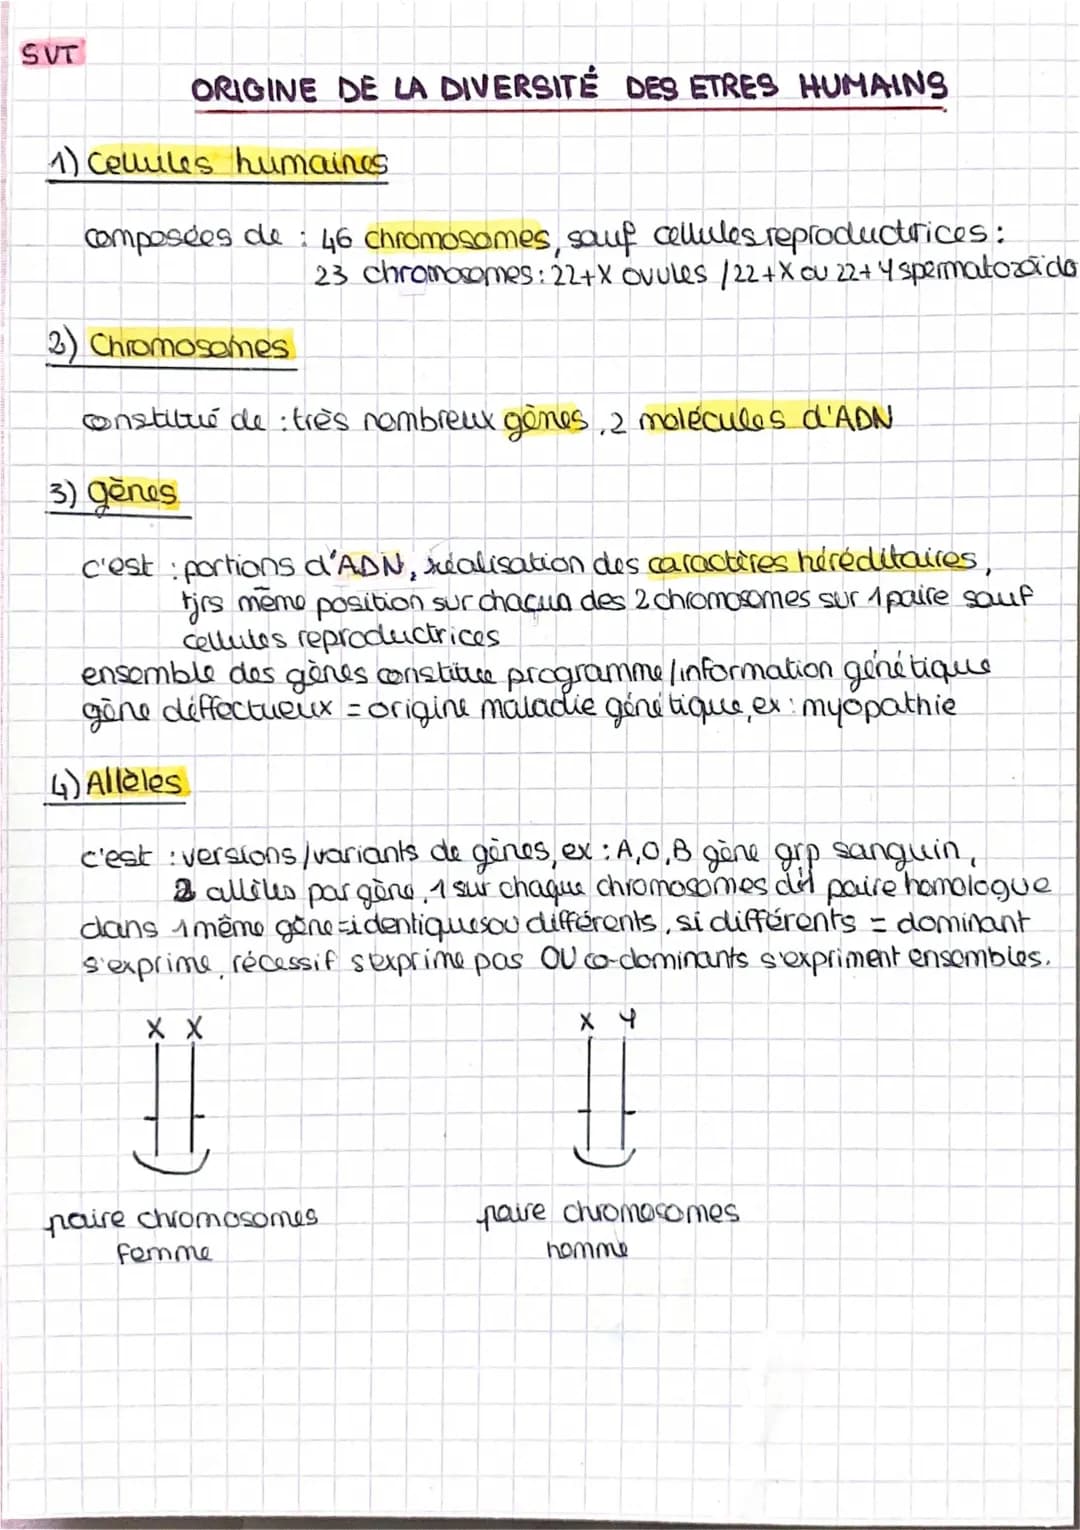 SVT
ORIGINE DE LA DIVERSITÉ DES ETRES HUMAINS
1) Cellules humaines
composées de : 46 chromosomes, sauf cellules reproductrices :
23 chromosomes : 22+X ovules / 22+X ou 22+Y spermatozoïds
2) Chromosomes
constitué de : très nombreux gènes, 2 molécules d'ADN
3) gènes
c'est : portions d'ADN, réalisation des caractères héréditaires,
tjrs même position sur chaçun des 2 chromosomes sur 1 paire sauf
cellules reproductrices
ensemble des gènes constitue programme/information génétique
gène déffectueux = origine maladie génétique, ex : myopathie
4) Allèles
c'est : versions/variants de gènes, ex : A,O,B gène grp sanguin,
2 allèles par gène, 1 sur chaque chromosomes paire homologue
dans 1 même gène = identiques ou différents, si différents = dominant
s'exprime, récessif s'exprime pas OU co-dominants s'expriment ensembles.
X X
X Y
paire chromosomes
femme
paire chromosomes
homme